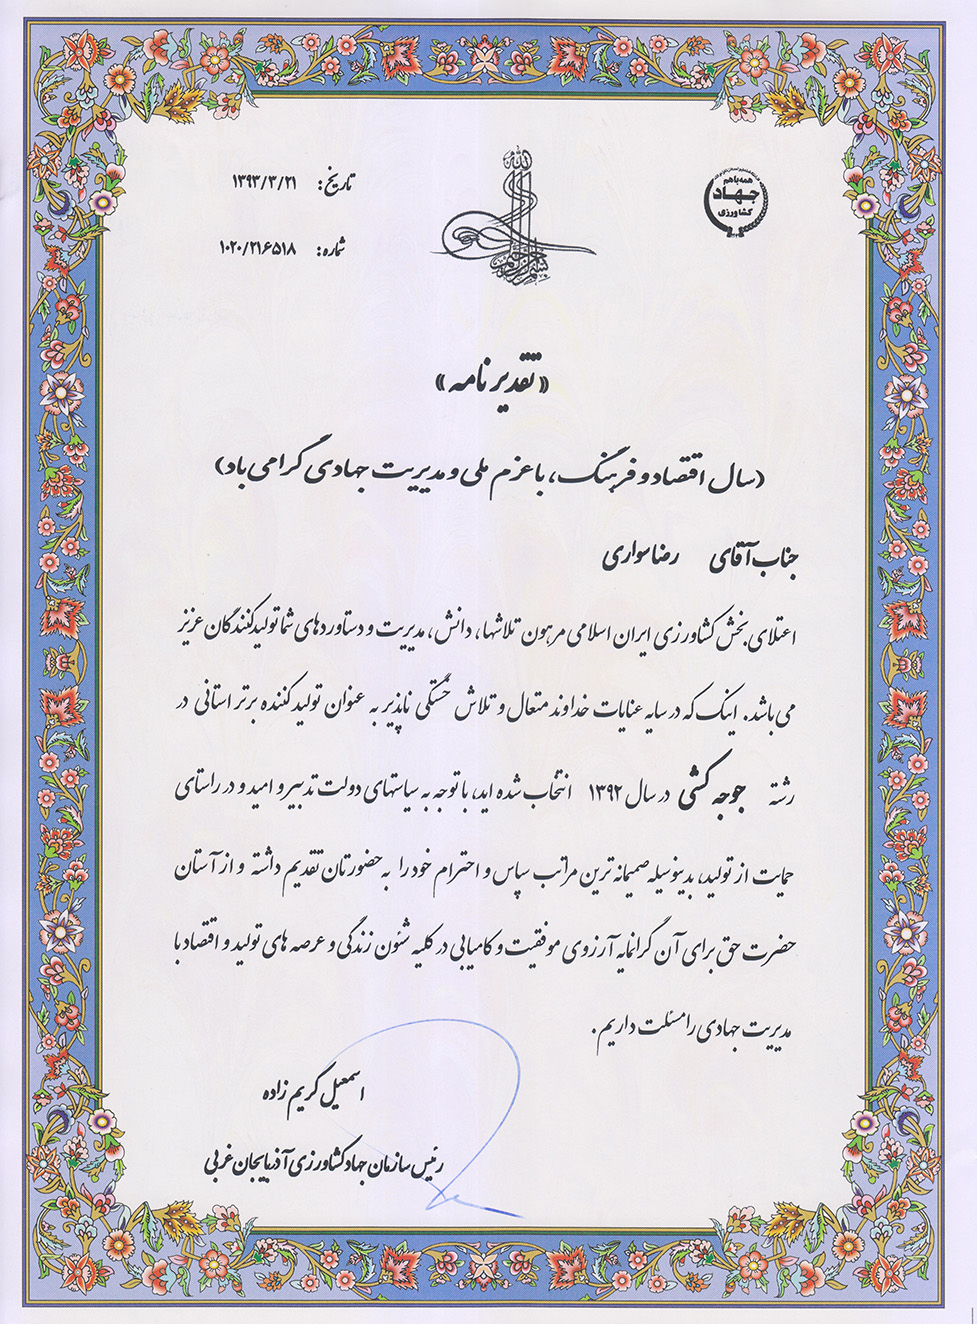 همه با هم
جهاد
کشاورزی
تاریخ: ۱۳۹۳/۳/۲۱
شماره: ۱۰۲۰/۲۱۶۵۱۸
بسم الله الرحمن الرحیم
«تقدیر نامه»
(سال اقتصاد و فرهنگ، با عزم ملی و مدیریت جهادی گرامی باد)
جناب آقای رضا سواری
اعتلای بخش کشاورزی ایران اسلامی مرهون تلاشها، دانش، مدیریت و دستاوردهای شما تولیدکنندگان عزیز
می باشد. اینک که در سایه عنایات خداوند متعال و تلاش خستگی ناپذیر به عنوان تولید کننده برتر استانی در
رشته جوجه کشی در سال ۱۳۹۲ انتخاب شده اید، با توجه به سیاستهای دولت تدبیر و امید و در راستای
حمایت از تولید، بدینوسیله صمیمانه ترین مراتب سپاس و احترام خود را به حضورتان تقدیم داشته و از آستان
حضرت حق برای آن گرانمایه آرزوی موفقیت و کامیابی در کلیه شئون زندگی و عرصه های تولید و اقتصاد با
مدیریت جهادی را مسئلت داریم.
اسمعیل کریم زاده
رئیس سازمان جهاد کشاورزی آذربایجان غربی